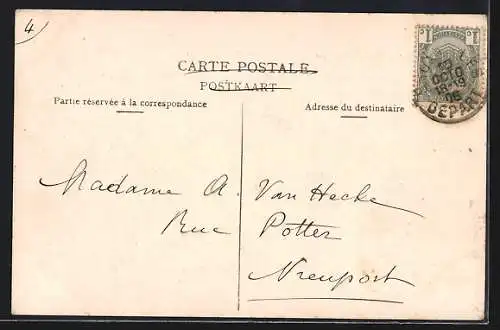 4
CARTE POSTALE
POSTKAART
Partie réservée à la correspondance
Adresse du destinataire
1 1
OCTO
DEPART
Madame A. Van Hecke
Rue Potter
Nieuport